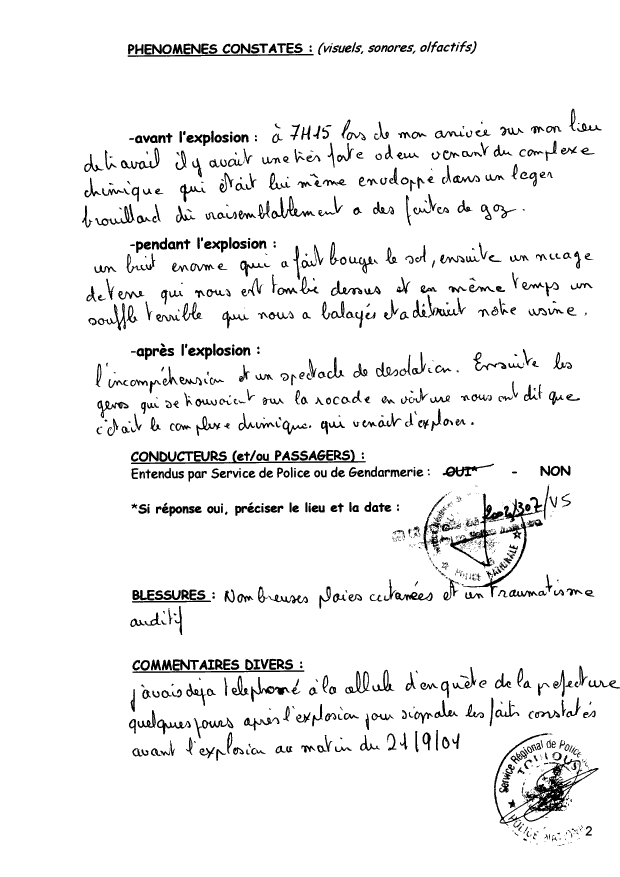 PHENOMENES CONSTATES : (visuels, sonores, olfactifs)
-avant l'explosion : à 7H15 lors de mon arrivée sur mon lieu
de travail il y avait une très forte odeur venant du complexe
chimique qui était lui même enveloppé dans un leger
brouillard dû vraisemblablement a des fuites de gaz.
-pendant l'explosion :
un bruit enorme qui a fait bouger le sol, ensuite un nuage
de terre qui nous est tombé dessus et en même temps un
souffle terrible qui nous a balayés et a détruit notre usine.
-après l'explosion :
l'incompréhension et un spectacle de desolation. Ensuite les
gens qui se trouvaient sur la rocade en voiture nous ont dit que
c'était le complexe chimique qui venait d'exploser.
CONDUCTEURS (et/ou PASSAGERS) :
Entendus par Service de Police ou de Gendarmerie : OUI* - NON
*Si réponse oui, préciser le lieu et la date :
2002/307/VS
POLICE NATIONALE
BLESSURES : Nombreuses plaies cutanées et un traumatisme
auditif
COMMENTAIRES DIVERS :
j'avais deja telephoné à la cellule d'enquête de la prefecture
quelques jours après l'explosion pour signaler les faits constatés
avant l'explosion au matin du 21/9/01
Service Régional de Police
TOULOUSE
POLICE NATIONALE
2